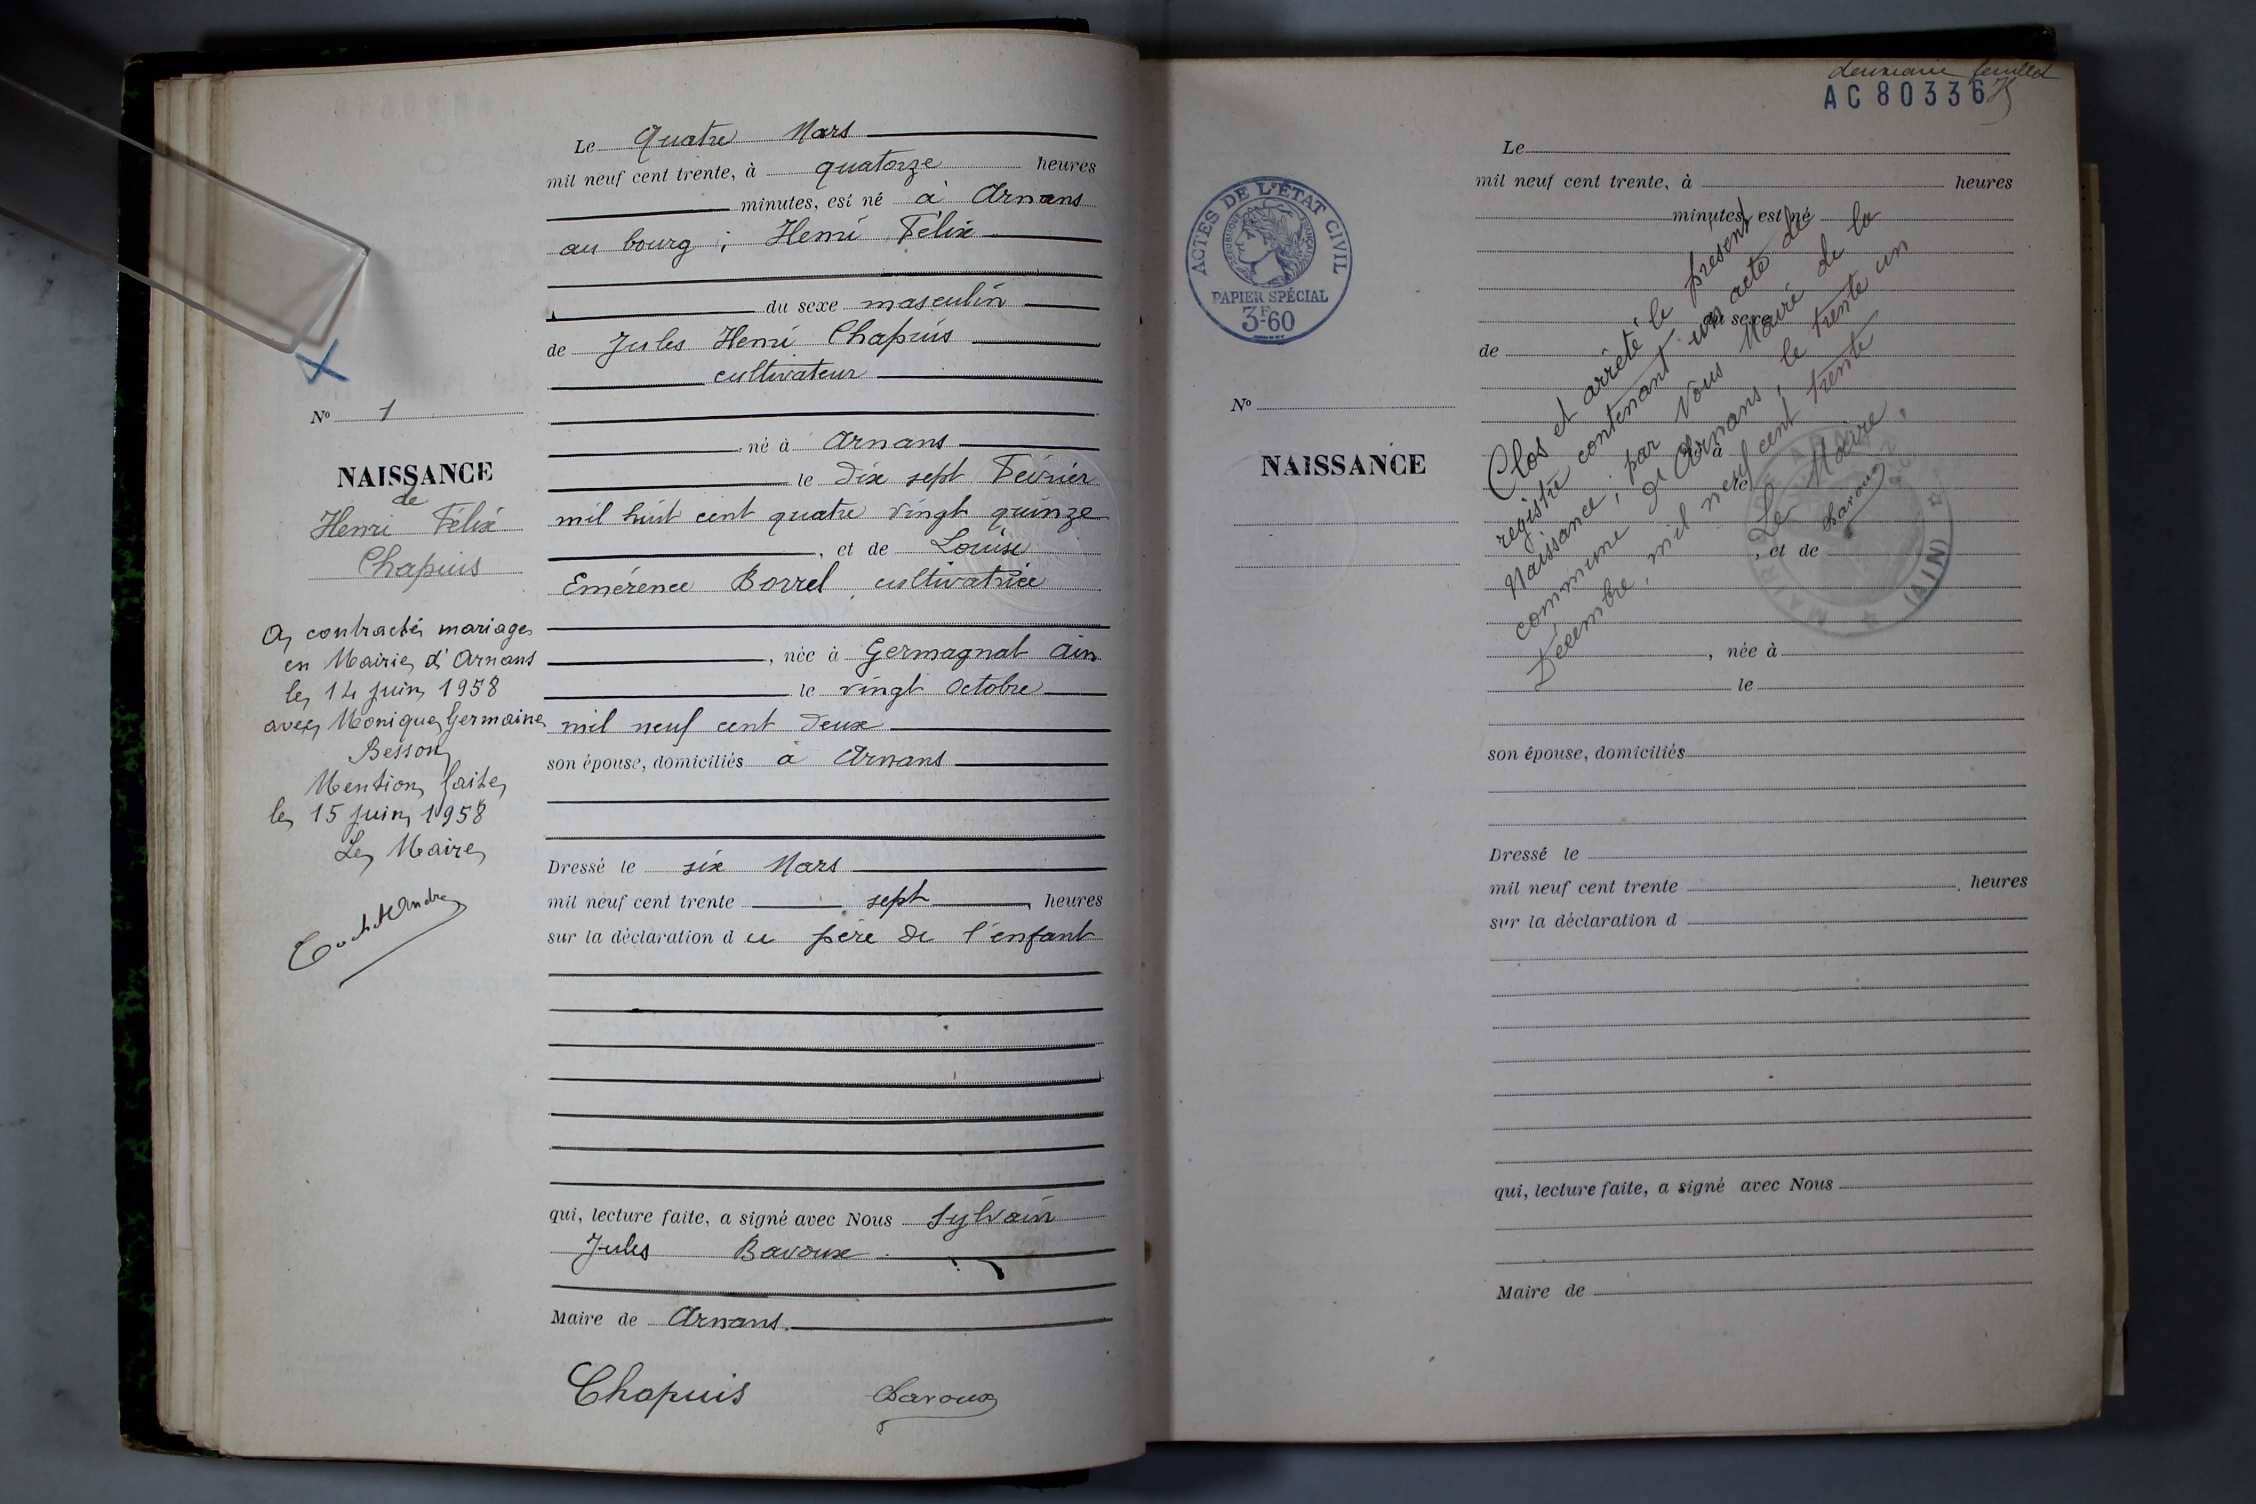 Le Quatre Mars
mil neuf cent trente, à quatorze heures
minutes, est né à Arnans
au bourg ; Henri Félix
du sexe masculin
de Jules Henri Chapuis
cultivateur
né à Arnans
le dix sept Février
mil huit cent quatre vingt quinze
, et de Louise
Emérence Borrel, cultivatrice
, née à Germagnat Ain
le vingt Octobre
mil neuf cent deux
son épouse, domiciliés à Arnans
Dressé le six Mars
mil neuf cent trente sept heures
sur la déclaration du père de l'enfant
qui, lecture faite, a signé avec Nous Sylvain
Jules Bavoux
Maire de Arnans.
Chapuis Bavoux
No 1
NAISSANCE
de
Henri Félix
Chapuis
A contracté mariage
en Mairie d'Arnans
le 14 juin 1958
avec Monique Germaine
Besson
Mention faite
le 15 juin 1958
Le Maire
deuxième feuillet
AC 80336
ACTES DE L'ÉTAT CIVIL
RÉPUBLIQUE FRANÇAISE
PAPIER SPÉCIAL
3F.60
No
NAISSANCE
Le
mil neuf cent trente, à heures
minutes, est né
du sexe
de
né à
le
, et de
, née à
le
son épouse, domiciliés
Dressé le
mil neuf cent trente heures
sur la déclaration d
qui, lecture faite, a signé avec Nous
Maire de
Clos et arrêté le présent
registre contenant un acte de
Naissance ; par Nous Maire de la
commune d'Arnans, le trente un
Décembre, mil neuf cent trente
Le Maire,
Bavoux
(AIN)